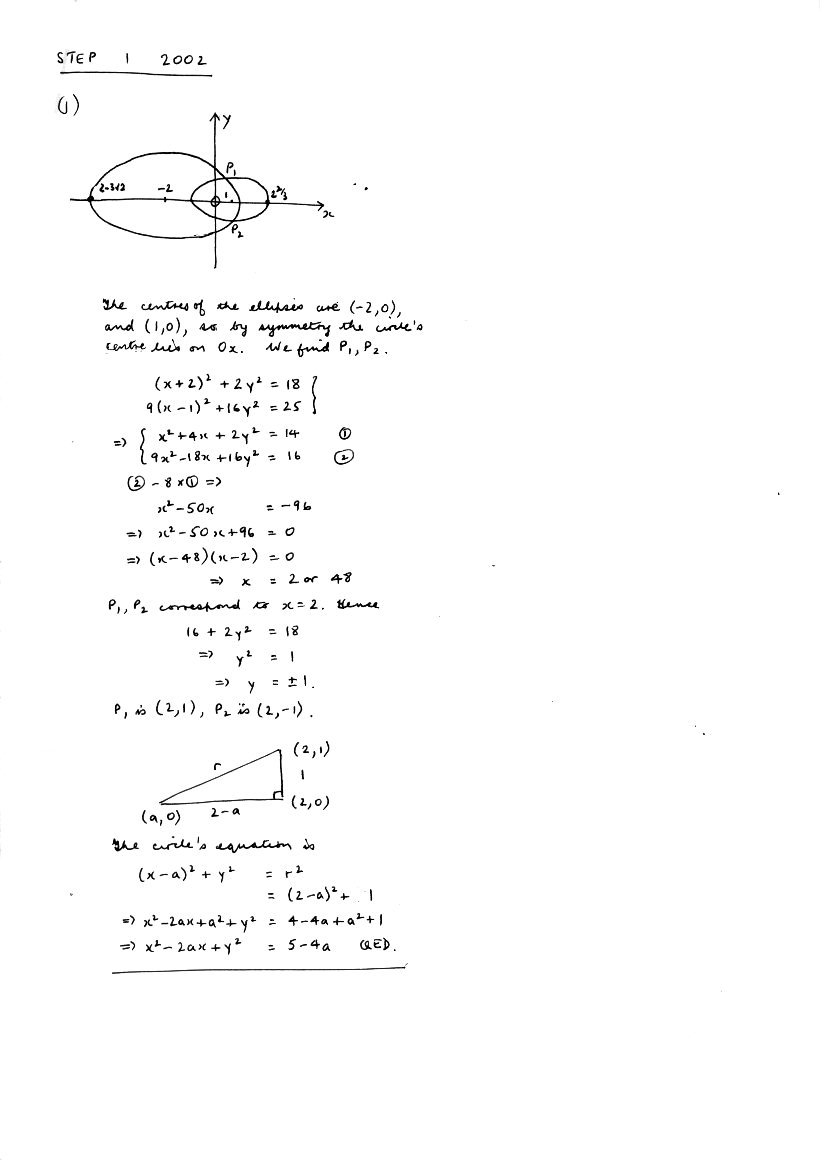 STEP 1 2002
(1)
y
P₁
2-3√2
-2
1
2⅔
x
P₂
The centres of the ellipses are (-2,0),
and (1,0), so by symmetry the circle's
centre lies on Ox. We find P₁, P₂.
(x+2)² + 2y² = 18 }
9(x-1)² + 16y² = 25 }
=> { x² + 4x + 2y² = 14 ①
{ 9x² - 18x + 16y² = 16 ②
② - 8 x ① =>
x² - 50x = -96
=> x² - 50x + 96 = 0
=> (x-48)(x-2) = 0
=> x = 2 or 48
P₁, P₂ correspond to x = 2. Hence
16 + 2y² = 18
=> y² = 1
=> y = ±1.
P₁ is (2,1), P₂ is (2,-1).
(2,1)
r
1
(2,0)
2-a
(a,0)
The circle's equation is
(x-a)² + y² = r²
= (2-a)² + 1
=> x² - 2ax + a² + y² = 4 - 4a + a² + 1
=> x² - 2ax + y² = 5 - 4a QED.